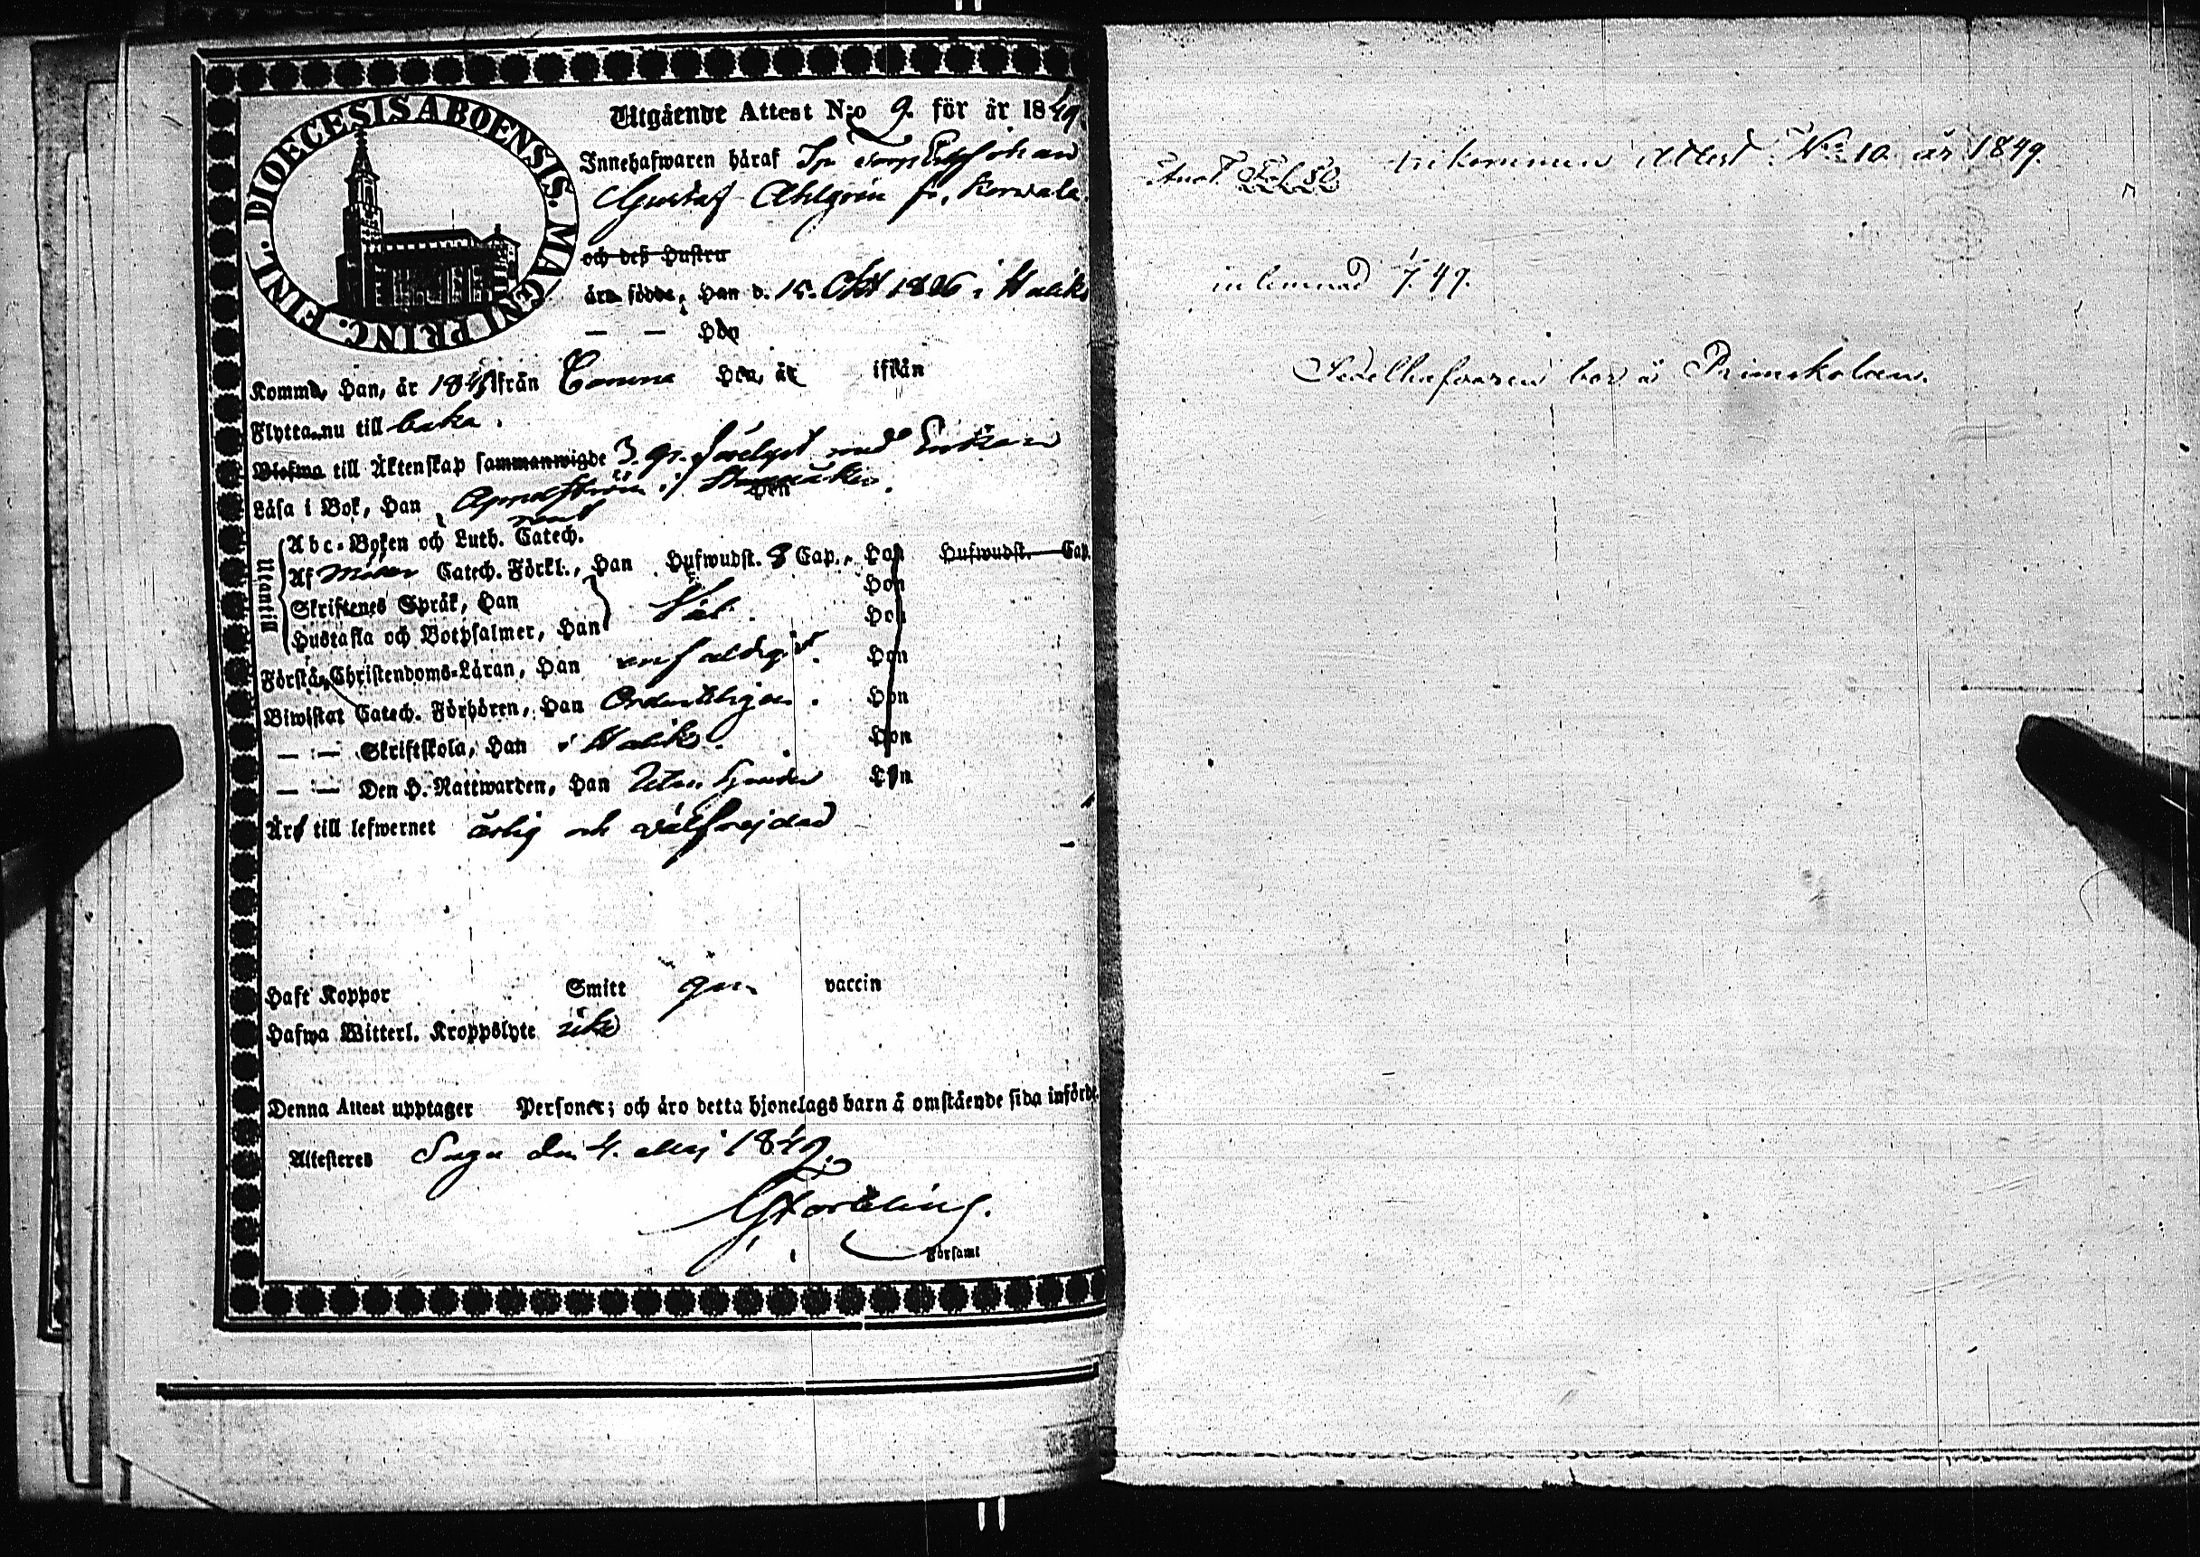 DIOECESIS ABOENSIS. MAGNI PRINC. FINL.
Utgående Attest N:o 9. för år 1849.
Innehafwaren häraf Johan
Gustaf Ahlgrén fr.
och deß Hustru
äro födde, Han d. 15. Oct 1826 i Haliko
— — Hon
Komma, Han, år 184 ifrån Hon, år ifrån
Flytta nu till baka.
Blefwa till Äktenskap sammanwigde 3. gr. förelyst med
Läsa i Bok, Han i Hon
rent
Utantill
Abc-Boken och Luth. Catech.
Af Catech. Förkl., Han Hufwudst. 8 Cap., Hon Hufwudst. Cap.
Skriftenes Språk, Han Hon
Hustafla och Botpsalmer, Han Väl. Hon
Förstå Christendoms-Läran, Han enfaldigt. Hon
Biwistat Catech. Förhören, Han Ordentligen. Hon
— — Skriftskola, Han i Haliko. Hon
— — Den H. Nattwarden, Han Hon
Äro till lefwernet ärlig och välfrejdad
Haft Koppor Smitt gm. vaccin
Hafwa Witterl. Kroppslyte icke
Denna Attest upptager Personer; och äro detta hjonelags barn å omstående sida införde.
Attesteres den 4. Maj 1849.
Församl
inkommen Attest N:o 10 år 1849.
inlemnad 49.
Sedelhafvaren bor å